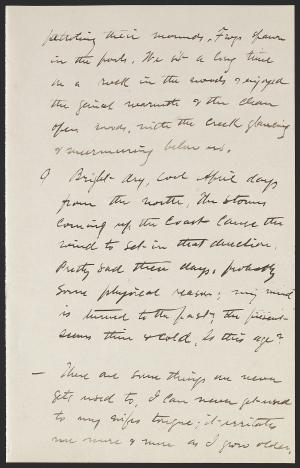 their mounds. Frogs spawn
in the pools. We sit a long time
on a rock in the woods & enjoyed
the genial warmth & the clean
open woods, with the Creek glancing
& murmuring below us.
9 Bright dry, cool April days
from the north, The storms
coming up the Coast Cause the
wind to set in that direction.
Pretty sad these days, probably
some physical reason; my mind
is turned to the past; the present
seems thin & cold. Is this age?
— There are some things we never
get used to, I can never get used
to my wifes tongue; it irritates
me more & more as I grow older.